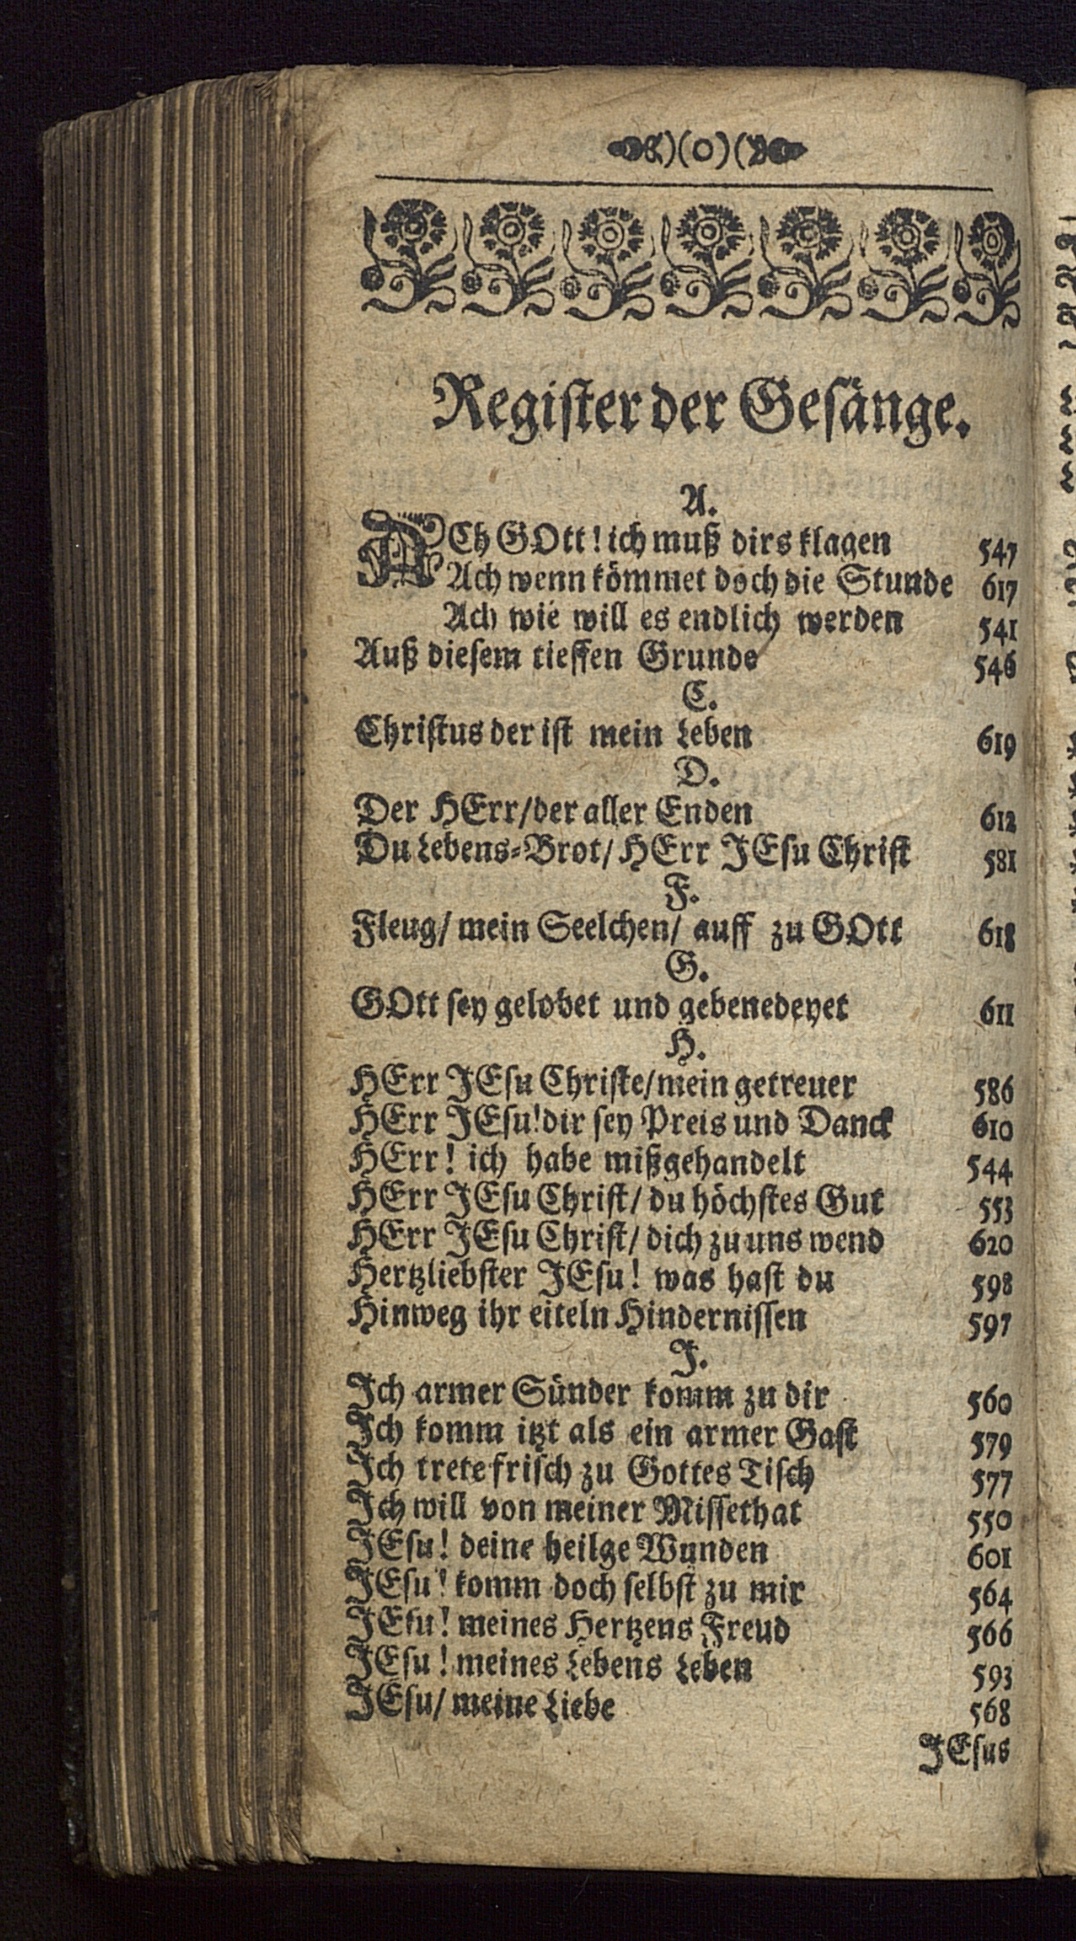 )(0)(
Register der Gesänge.
A.
ACh GOtt! ich muß dirs klagen 547
Ach wenn kömmet doch die Stunde 617
Ach wie will es endlich werden 541
Auß diesem tieffen Grunde 546
C.
Christus der ist mein Leben 619
D.
Der HErr/der aller Enden 612
Du Lebens-Brot/ HErr JEsu Christ 581
F.
Fleug/ mein Seelchen/ auff zu GOtt 618
G.
GOtt sey gelobet und gebenedeyet 611
H.
HErr JEsu Christe/mein getreuer 586
HErr JEsu!dir sey Preis und Danck 610
HErr! ich habe mißgehandelt 544
HErr JEsu Christ/ du höchstes Gut 553
HErr JEsu Christ/ dich zu uns wend 620
Hertzliebster JEsu! was hast du 598
Hinweg ihr eiteln Hindernissen 597
J.
Ich armer Sünder komm zu dir 560
Ich komm itzt als ein armer Gast 579
Ich trete frisch zu Gottes Tisch 577
Ich will von meiner Missethat 550
JEsu! deine heilge Wunden 601
JEsu! komm doch selbst zu mir 564
JEsu! meines Hertzens Freud 566
JEsu! meines Lebens Leben 593
JEsu/ meine Liebe 568
JEsus